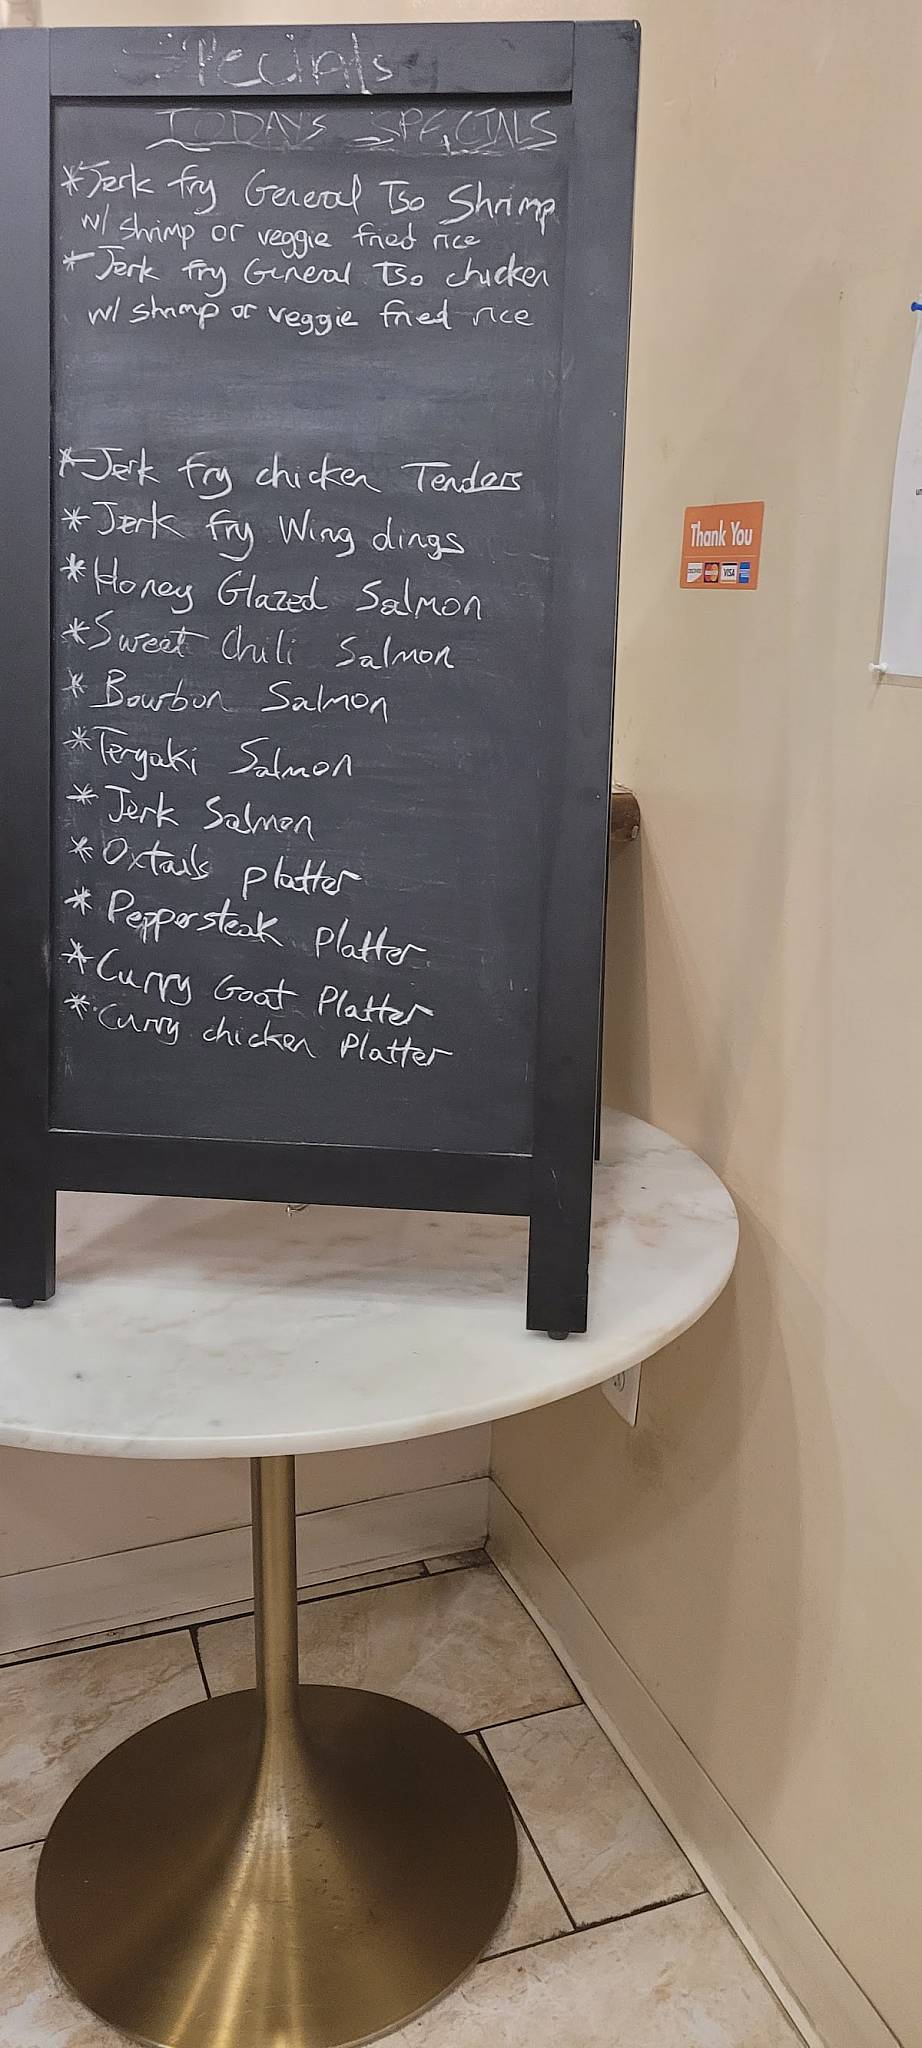 Specials
TODAYS SPECIALS
*Jerk fry General Tso Shrimp
w/ shrimp or veggie fried rice
*Jerk fry General Tso chicken
w/ shrimp or veggie fried rice
*Jerk fry chicken Tenders
*Jerk fry Wing dings
*Honey Glazed Salmon
*Sweet Chili Salmon
*Bourbon Salmon
*Teryaki Salmon
*Jerk Salmon
*Oxtails platter
*Peppersteak Platter
*Curry Goat Platter
*Curry chicken Platter
Thank You
DISCOVER MasterCard VISA